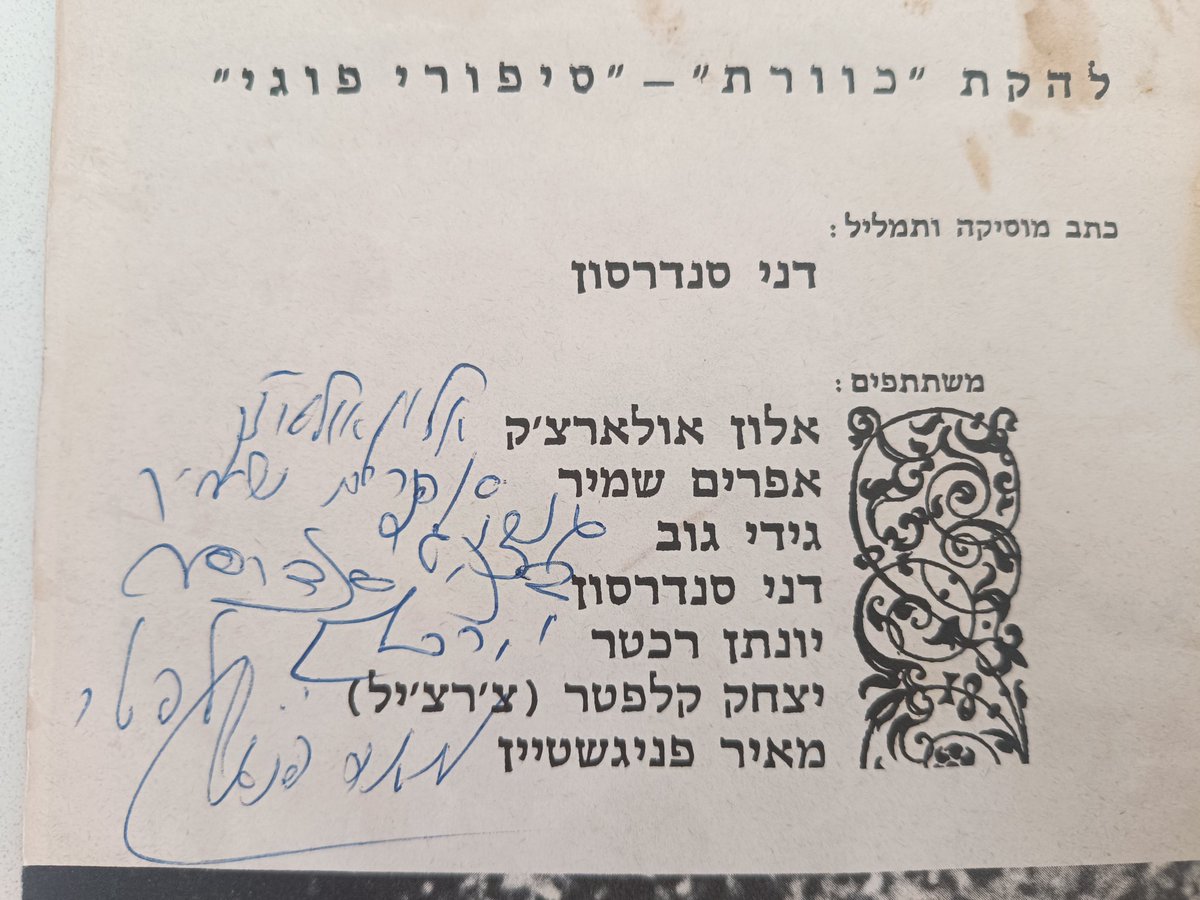 להקת "כוורת" – "סיפורי פוגי"
כתב מוסיקה ותמליל:
דני סנדרסון
משתתפים:
אלון אולארצ'ק
אפרים שמיר
גידי גוב
דני סנדרסון
יונתן רכטר
יצחק קלפטר (צ'רצ'יל)
מאיר פניגשטיין
אלון
אפרים שמיר
סנדרסון
י. רכטר
י. קלפטר
מאיר